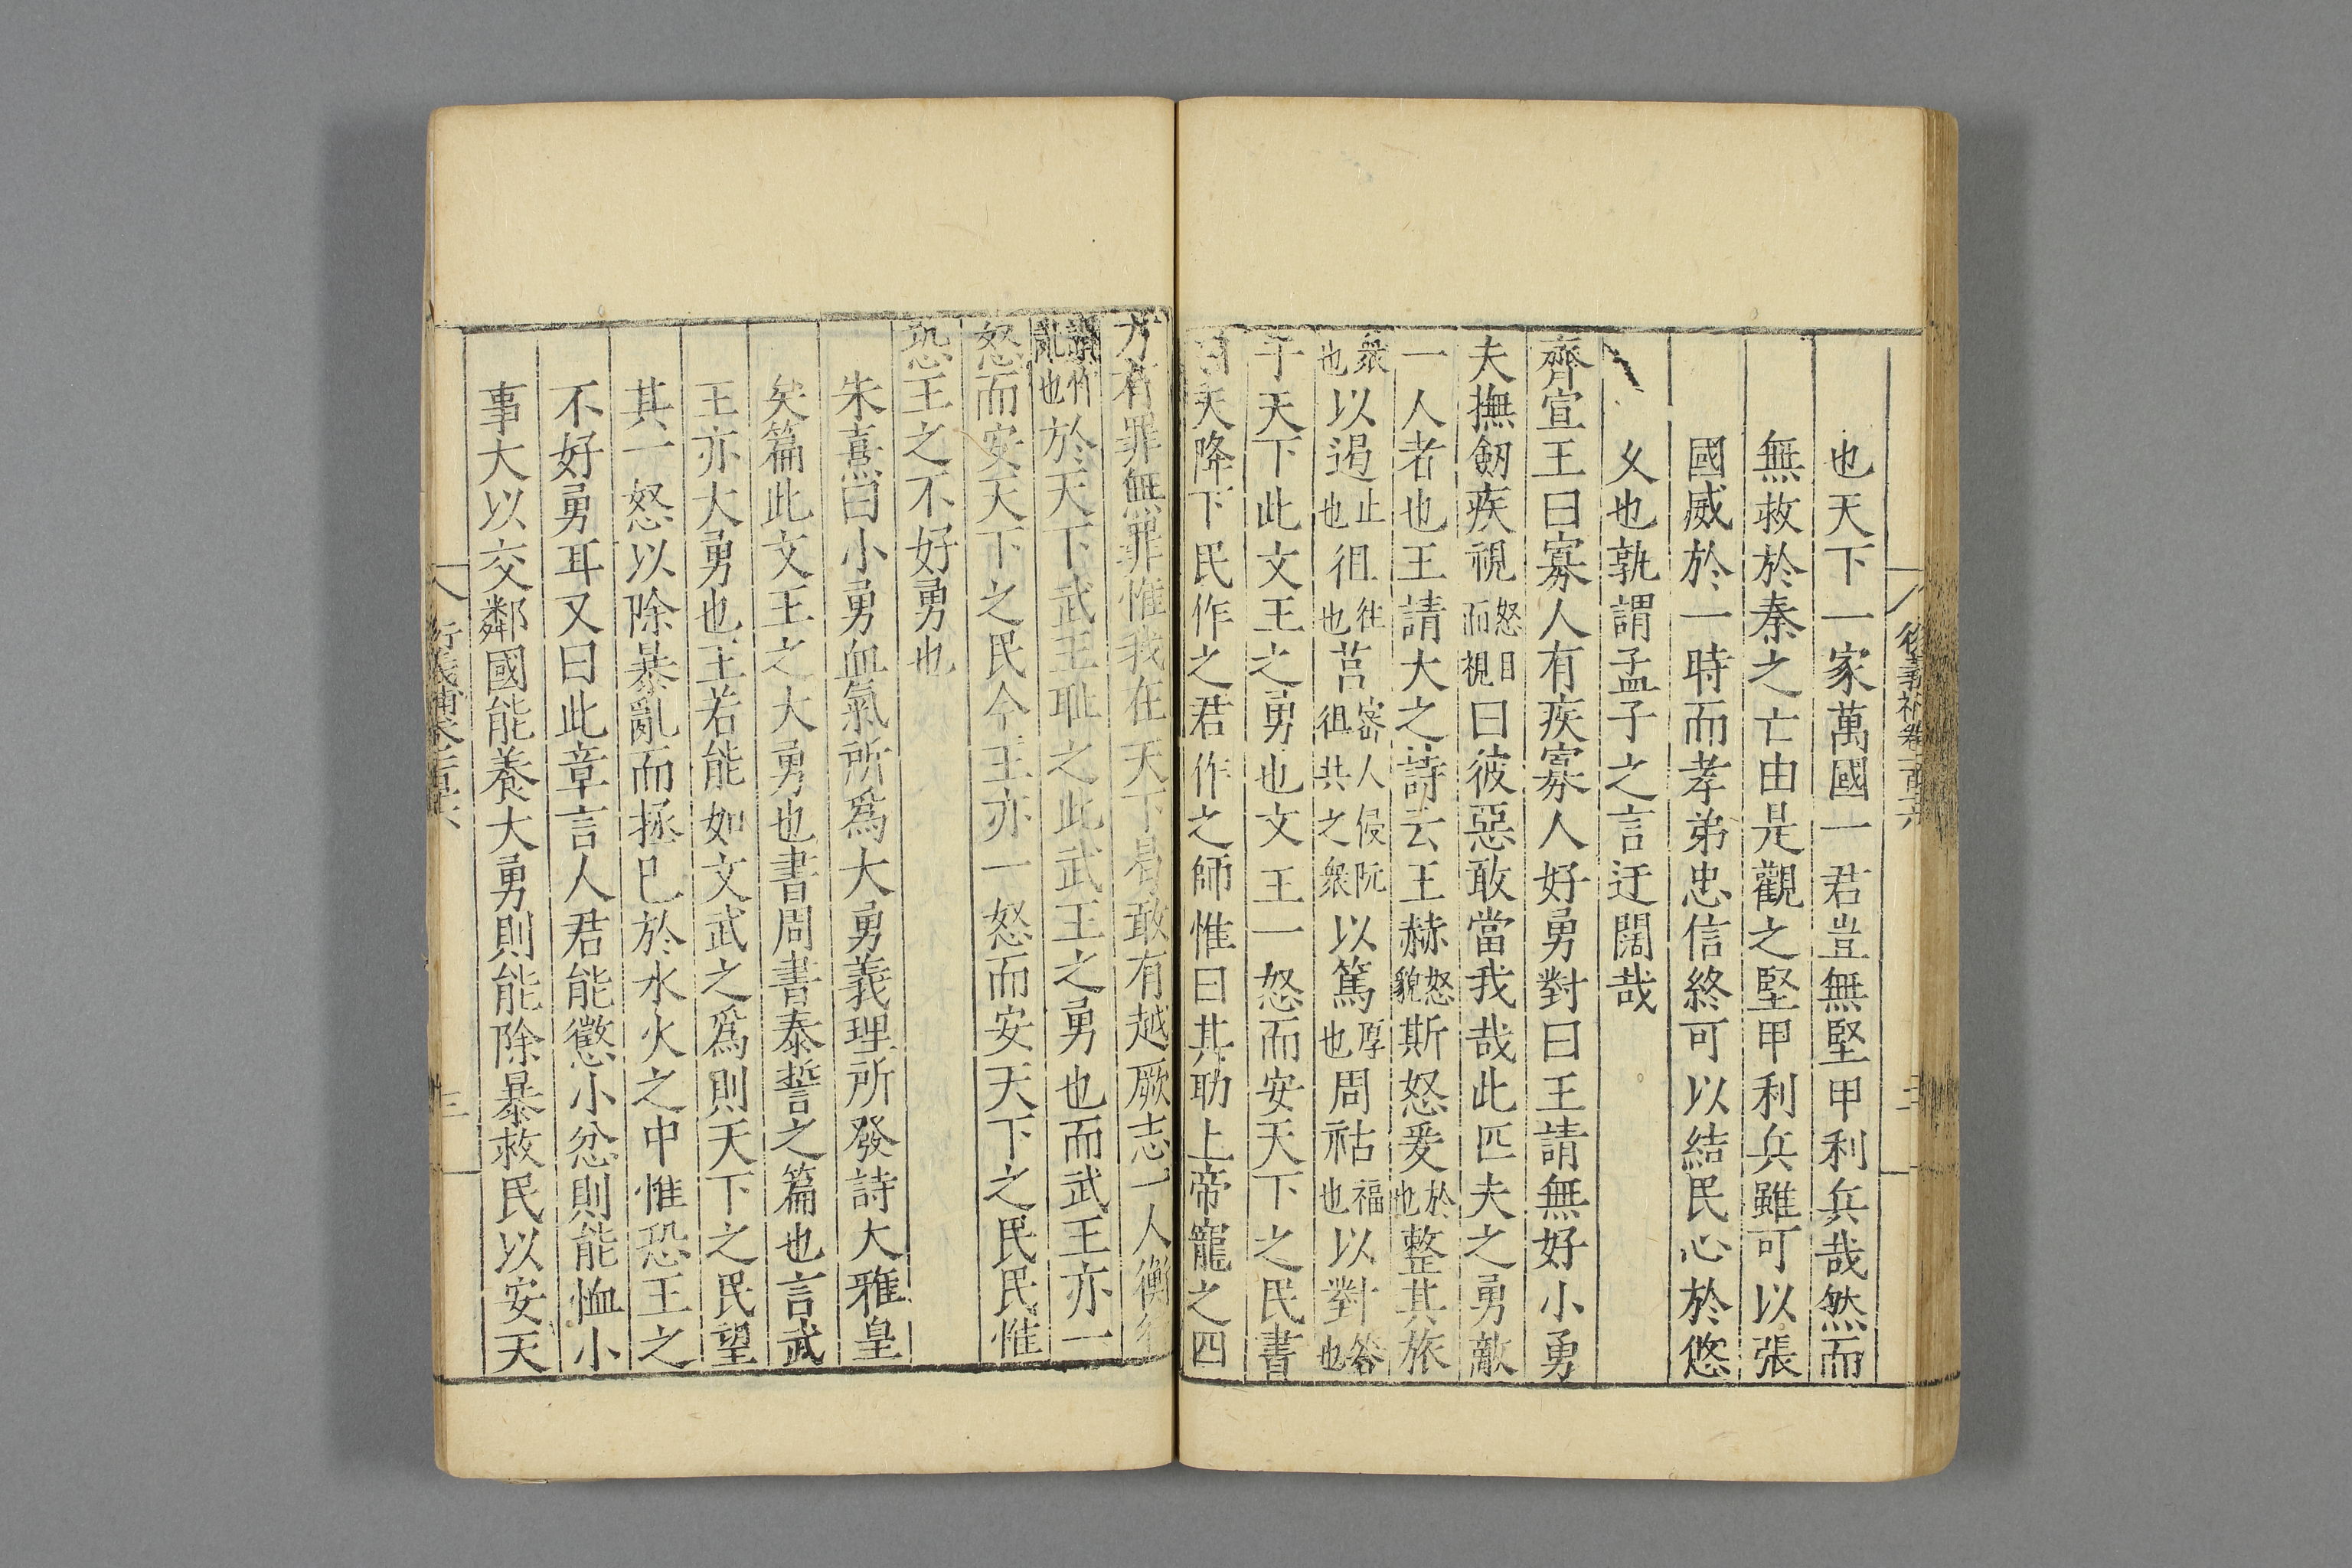 也天下一家萬國一君豈無堅甲利兵哉然而
無救於秦之亡由是觀之堅甲利兵雖可以張
國威於一時而孝弟忠信終可以結民心於悠
乆也孰謂孟子之言迂闊哉
齊宣王曰寡人有疾寡人好勇對曰王請無好小勇
夫撫劒疾視怒目而視曰彼惡敢當我哉此匹夫之勇敵
一人者也王請大之詩云王赫怒貌斯怒爰於也整其旅
衆也以遏止也徂往也莒密人侵阮徂共之衆以篤厚也周祜福也以對答也
于天下此文王之勇也文王一怒而安天下之民書
曰天降下民作之君作之師惟曰其助上帝寵之四
方有罪無罪惟我在天下曷敢有越厥志一人衡行
謂作亂也於天下武王耻之此武王之勇也而武王亦一
怒而安天下之民今王亦一怒而安天下之民民惟
恐王之不好勇也
朱熹曰小勇血氣所爲大勇義理所發詩大雅皇
矣篇此文王之大勇也書周書泰誓之篇也言武
王亦大勇也王若能如文武之爲則天下之民望
其一怒以除暴亂而拯已於水火之中惟恐王之
不好勇耳又曰此章言人君能懲小忿則能恤小
事大以交鄰國能養大勇則能除暴救民以安天